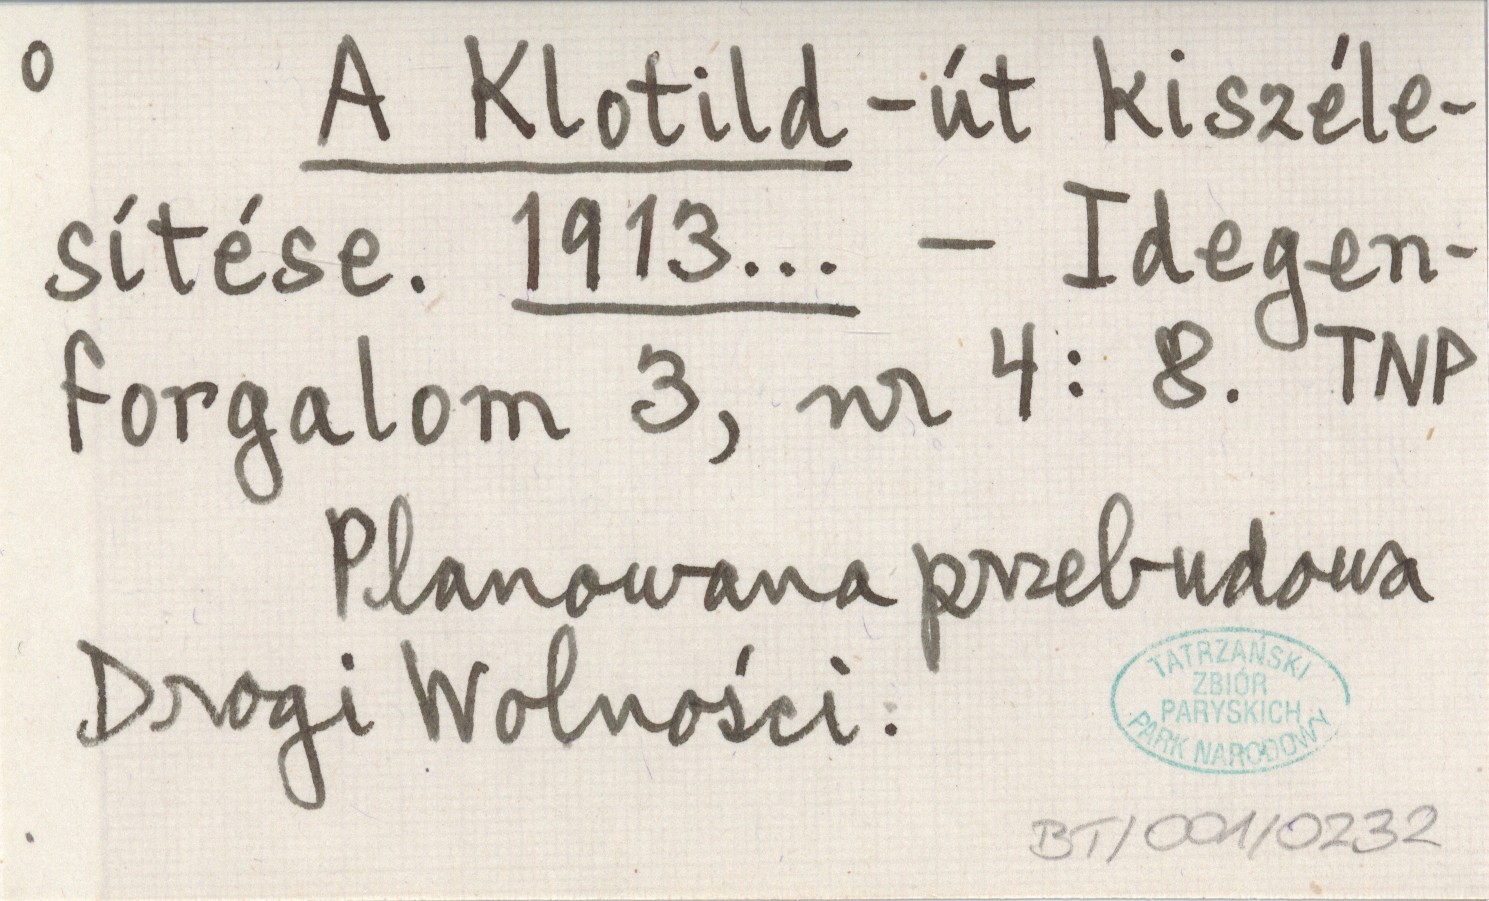 o A Klotild-út kiszéle-
sítése. 1913... – Idegen-
forgalom 3, nr 4: 8. TNP
Planowana przebudowa
Drogi Wolności.
TATRZAŃSKI
ZBIÓR
PARYSKICH
PARK NARODOWY
BT/001/0232